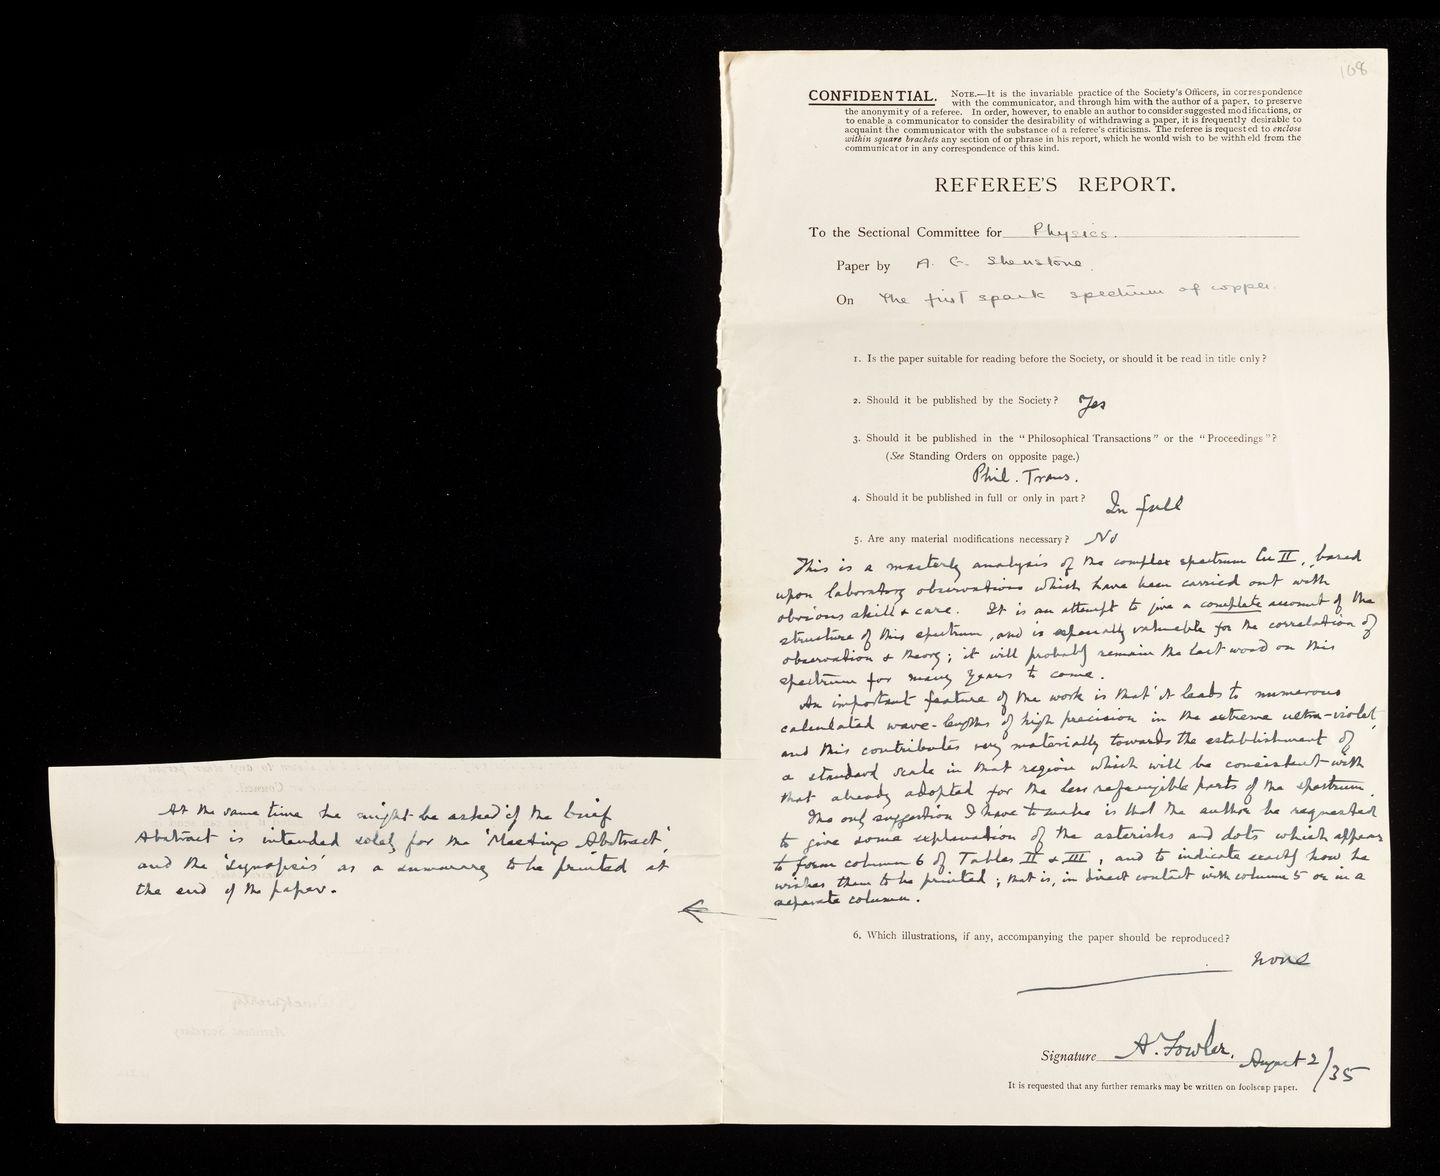 108
CONFIDENTIAL. NOTE.—It is the invariable practice of the Society's Officers, in correspondence
with the communicator, and through him with the author of a paper, to preserve
the anonymity of a referee. In order, however, to enable an author to consider suggested modifications, or
to enable a communicator to consider the desirability of withdrawing a paper, it is frequently desirable to
acquaint the communicator with the substance of a referee's criticisms. The referee is requested to enclose
within square brackets any section of or phrase in his report, which he would wish to be withheld from the
communicator in any correspondence of this kind.
REFEREE'S REPORT.
To the Sectional Committee for Physics.
Paper by A. G. Shenstone.
On The first spark spectrum of copper.
1. Is the paper suitable for reading before the Society, or should it be read in title only?
2. Should it be published by the Society? Yes
3. Should it be published in the "Philosophical Transactions" or the "Proceedings"?
(See Standing Orders on opposite page.)
Phil. Trans.
4. Should it be published in full or only in part? In full
5. Are any material modifications necessary? No
This is a masterly analysis of the complex spectrum Cu II, based
upon laboratory observations which have been carried out with
obvious skill & care. It is an attempt to give a complete account of the
structure of this spectrum, and is especially valuable for the correlation of
observation & theory; it will probably remain the last word on this
spectrum for many years to come.
An important feature of the work is that it leads to numerous
calculated wave-lengths of high precision in the extreme ultra-violet,
and this contributes very materially towards the establishment of
a standard scale in that region which will be consistent with
that already adopted for the less refrangible parts of the spectrum.
The only suggestion I have to make is that the author be requested
to give some explanation of the asterisks and dots which appear
to form column 6 of Tables II & III, and to indicate exactly how he
wishes them to be printed; that is, in direct contact with column 5 or in a
separate column.
At the same time he might be asked if the brief
Abstract is intended solely for the 'Meeting Abstract',
and the 'Synopsis' as a summary to be printed at
the end of the paper.
6. Which illustrations, if any, accompanying the paper should be reproduced?
none
Signature A. Fowler. August 2/35
It is requested that any further remarks may be written on foolscap paper.